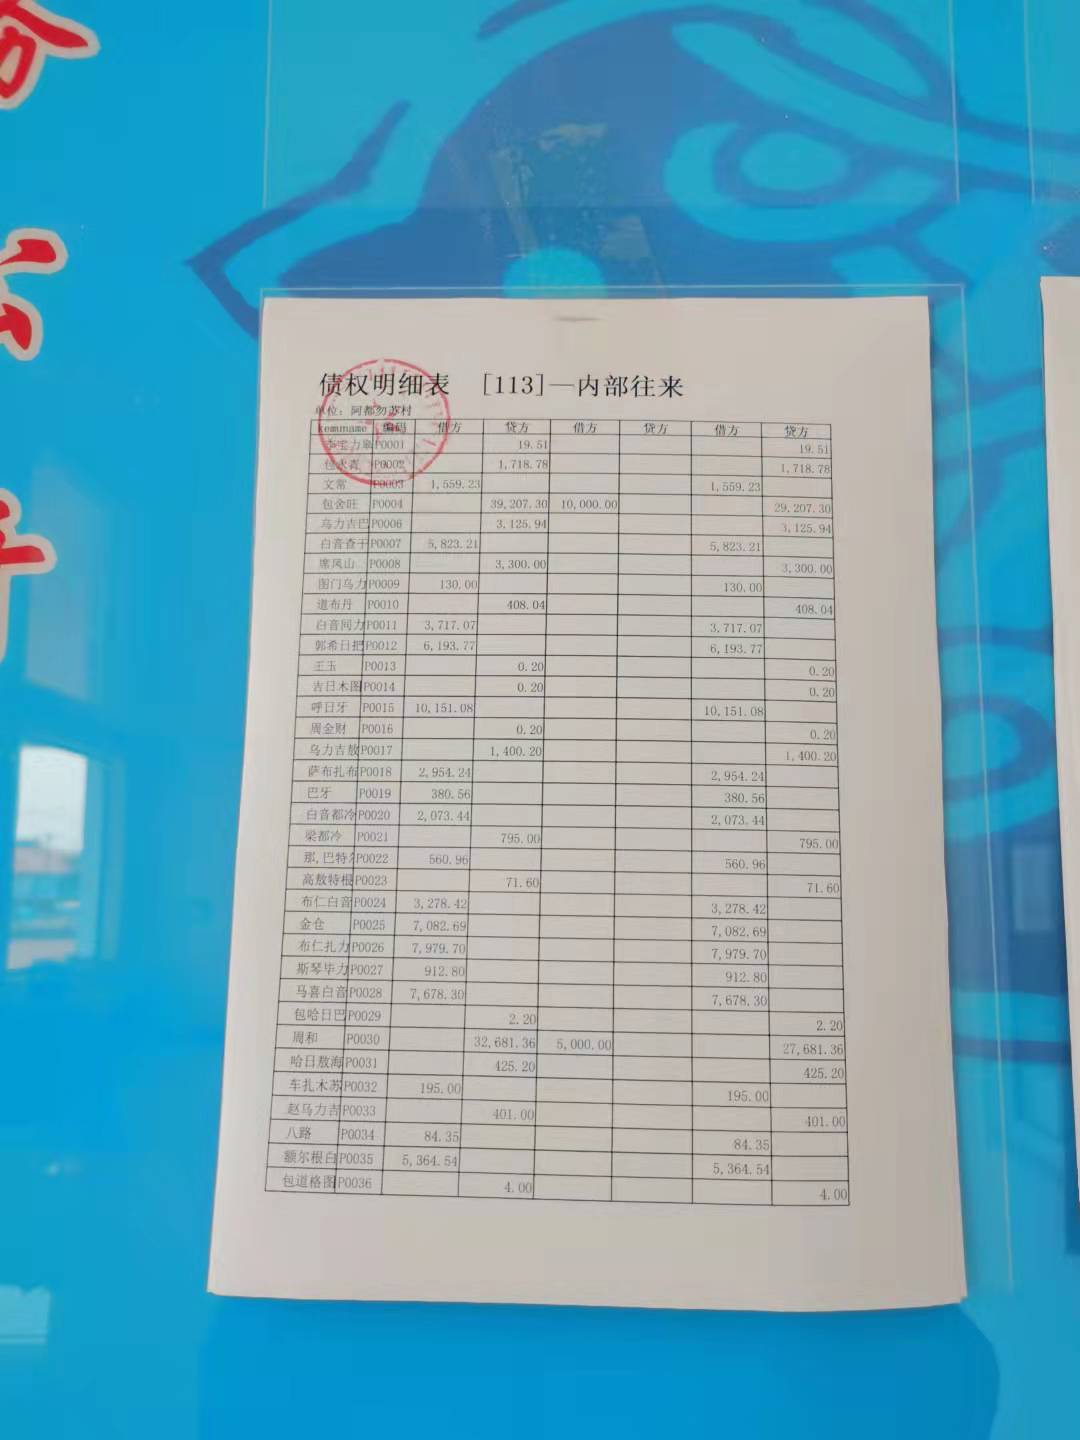 务
公
开
债权明细表 [113]—内部往来
单位: 阿都勿苏村
kemuname 编码 借方 贷方 借方 贷方 借方 贷方
李宝力皋 P0001 19.51 19.51
包永青 P0002 1,718.78 1,718.78
文常 P0003 1,559.23 1,559.23
包舍旺 P0004 39,207.30 10,000.00 29,207.30
乌力吉巴 P0006 3,125.94 3,125.94
白音查干 P0007 5,823.21 5,823.21
席凤山 P0008 3,300.00 3,300.00
图门乌力 P0009 130.00 130.00
道布丹 P0010 408.04 408.04
白音同力 P0011 3,717.07 3,717.07
郭希日把 P0012 6,193.77 6,193.77
王玉 P0013 0.20 0.20
吉日木图 P0014 0.20 0.20
呼日牙 P0015 10,151.08 10,151.08
周金财 P0016 0.20 0.20
乌力吉敖 P0017 1,400.20 1,400.20
萨布扎布 P0018 2,954.24 2,954.24
巴牙 P0019 380.56 380.56
白音都冷 P0020 2,073.44 2,073.44
梁都冷 P0021 795.00 795.00
那,巴特尔 P0022 560.96 560.96
高敖特根 P0023 71.60 71.60
布仁白音 P0024 3,278.42 3,278.42
金仓 P0025 7,082.69 7,082.69
布仁扎力 P0026 7,979.70 7,979.70
斯琴毕力 P0027 912.80 912.80
马喜白音 P0028 7,678.30 7,678.30
包哈日巴 P0029 2.20 2.20
周和 P0030 32,681.36 5,000.00 27,681.36
哈日敖海 P0031 425.20 425.20
车扎木苏 P0032 195.00 195.00
赵乌力吉 P0033 401.00 401.00
八路 P0034 84.35 84.35
额尔根白 P0035 5,364.54 5,364.54
包道格图 P0036 4.00 4.00